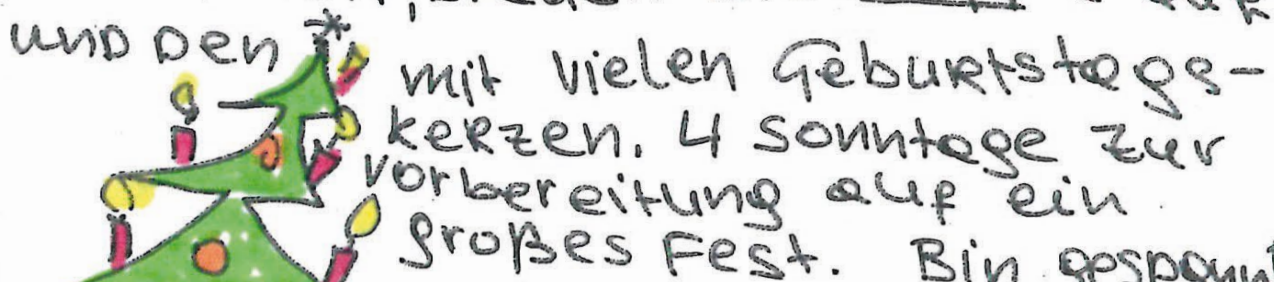 und den
mit vielen Geburtstags-
kerzen. 4 Sonntage zur
Vorbereitung auf ein
großes Fest. Bin gespannt